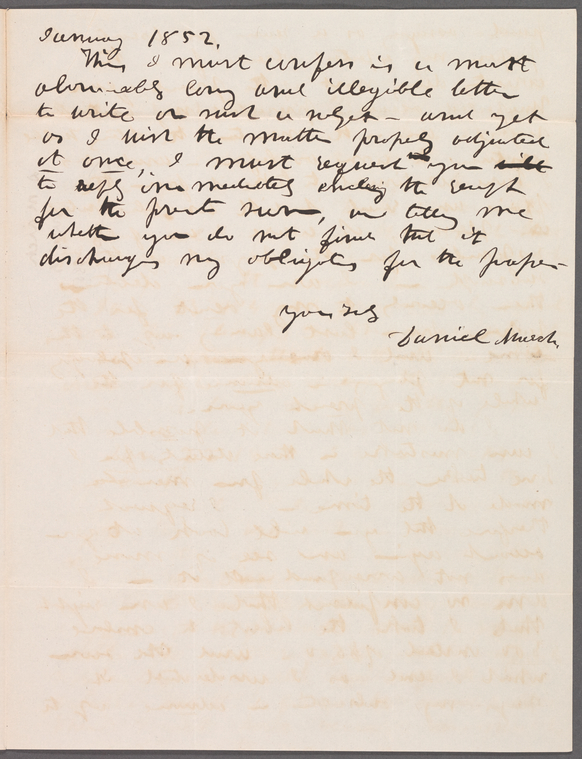 January 1852.
This I must confess is a most
abominably long and illegible letter
to write on such a subject – and yet
as I wish the matter properly adjusted
at once, I must request you
to reply immediately enclosing the receipt
for the present sum, or telling me
whether you do not find that it
discharges my obligations for the paper –
Yours truly
Daniel March.